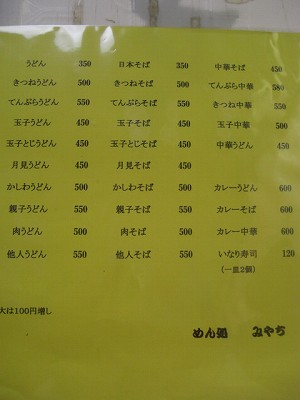 うどん 350 日本そば 350 中華そば 450
きつねうどん 500 きつねそば 500 てんぷら中華 580
てんぷらうどん 550 てんぷらそば 550 きつね中華 550
玉子うどん 450 玉子そば 450 玉子中華 500
玉子とじうどん 450 玉子とじそば 450 中華うどん 450
月見うどん 450 月見そば 450
かしわうどん 500 かしわそば 500 カレーうどん 600
親子うどん 550 親子そば 550 カレーそば 600
肉うどん 500 肉そば 500 カレー中華 600
他人うどん 550 他人そば 550 いなり寿司 120
(一皿2個)
大は100円増し
めん処 みやち